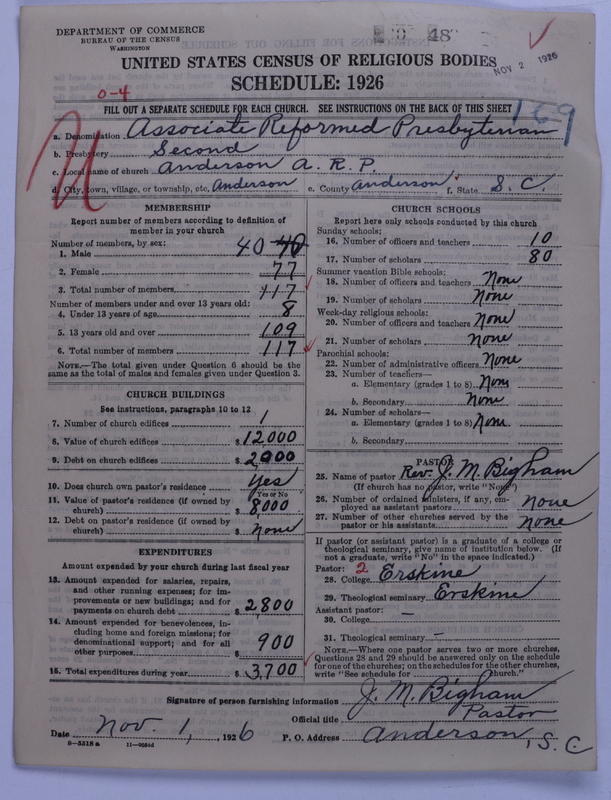 DEPARTMENT OF COMMERCE
BUREAU OF THE CENSUS
WASHINGTON
48
NOV 2 1926
UNITED STATES CENSUS OF RELIGIOUS BODIES
SCHEDULE: 1926
0-4
FILL OUT A SEPARATE SCHEDULE FOR EACH CHURCH. SEE INSTRUCTIONS ON THE BACK OF THIS SHEET
169
a. Denomination Associate Reformed Presbyterian
b. Presbytery Second
c. Local name of church Anderson A. R. P.
d. City, town, village, or township, etc. Anderson e. County Anderson f. State S. C.
MEMBERSHIP
Report number of members according to definition of
member in your church
Number of members, by sex:
1. Male 40 40
2. Female 77
3. Total number of members 117
Number of members under and over 13 years old:
4. Under 13 years of age 8
5. 13 years old and over 109
6. Total number of members 117
NOTE.—The total given under Question 6 should be
same as the total of males and females given under Question 3.
CHURCH BUILDINGS
See instructions, paragraphs 10 to 12
7. Number of church edifices 1
8. Value of church edifices $12000
9. Debt on church edifices $2000
10. Does church own pastor's residence Yes
Yes or No
11. Value of pastor's residence (if owned by
church) $8000
12. Debt on pastor's residence (if owned by
church) $None
EXPENDITURES
Amount expended by your church during last fiscal year
13. Amount expended for salaries, repairs,
and other running expenses; for im-
provements or new buildings; and for
payments on church debt $2800
14. Amount expended for benevolences, in-
cluding home and foreign missions; for
denominational support; and for all
other purposes $900
15. Total expenditures during year $3,700
CHURCH SCHOOLS
Report here only schools conducted by this church
Sunday schools:
16. Number of officers and teachers 10
17. Number of scholars 80
Summer vacation Bible schools:
18. Number of officers and teachers None
19. Number of scholars None
Week-day religious schools:
20. Number of officers and teachers None
21. Number of scholars None
Parochial schools:
22. Number of administrative officers None
23. Number of teachers—
a. Elementary (grades 1 to 8) None
b. Secondary None
24. Number of scholars—
a. Elementary (grades 1 to 8) None
b. Secondary
PASTOR
25. Name of pastor Rev. J. M. Bigham
(If church has no pastor, write "None")
26. Number of ordained ministers, if any, em-
ployed as assistant pastors none
27. Number of other churches served by the
pastor or his assistants none
If pastor (or assistant pastor) is a graduate of a college or
theological seminary, give name of institution below. (If
not a graduate, write "No" in the space indicated.)
Pastor: 2
28. College Erskine
29. Theological seminary Erskine
Assistant pastor:
30. College —
31. Theological seminary —
NOTE.—Where one pastor serves two or more churches,
Questions 28 and 29 should be answered only on the schedule
for one of the churches; on the schedules for the other churches,
write "See schedule for Church."
Signature of person furnishing information J. M. Bigham
Official title Pastor
Date Nov. 1, 1926 P. O. Address Anderson, S. C.
8-5518 a